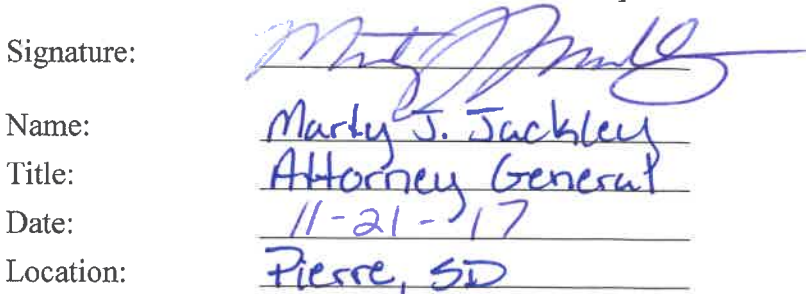 Signature: Marty J. Jackley
Name: Marty J. Jackley
Title: Attorney General
Date: 11-21-17
Location: Pierre, SD